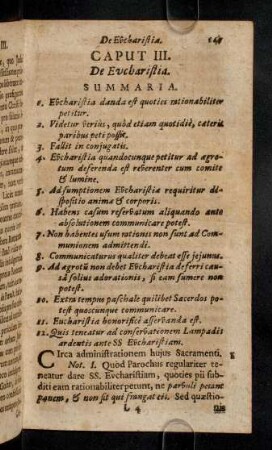 De Evcharistia.
CAPUT III.
De Evcharistia.
SUMMARIA.
1. Evcharistia danda est quoties rationabiliter
petitur.
2. Videtur veriùs, quòd etiam quotidiè, cæteris
paribus peti possit.
3. Fallit in conjugatis.
4. Evcharistia quandocunque petitur ad ægro-
tum deferenda est reverenter cum comite
& lumine.
5. Ad sumptionem Evcharistiæ requiritur di-
spositio animæ & corporis.
6. Habens casum reservatum aliquando ante
absolutionem communicare potest.
7. Non habentes usum rationis non sunt ad Com-
munionem admittendi.
8. Communicaturus qualiter debeat esse jejunus.
9. Ad ægrotũ non debet Evcharistia deferri cau-
sâ solius adorationis, si eam sumere non
potest.
10. Extra tempus paschale quilibet Sacerdos po-
test quoscunque communicare.
11. Eucharistia honorificè asservanda est.
12. Quis teneatur ad conservationem Lampadis
ardentis ante SS Evcharistiam.
CIrca administrationem hujus Sacramenti,
Not. 1. Quod Parochus regulariter te-
neatur dare SS. Evcharistiam, quoties pii sub-
diti eam rationabiliter petunt, ne parvuli petant
panem, & non sit qui frangat eis. Sed quæstio-
L 4
nis